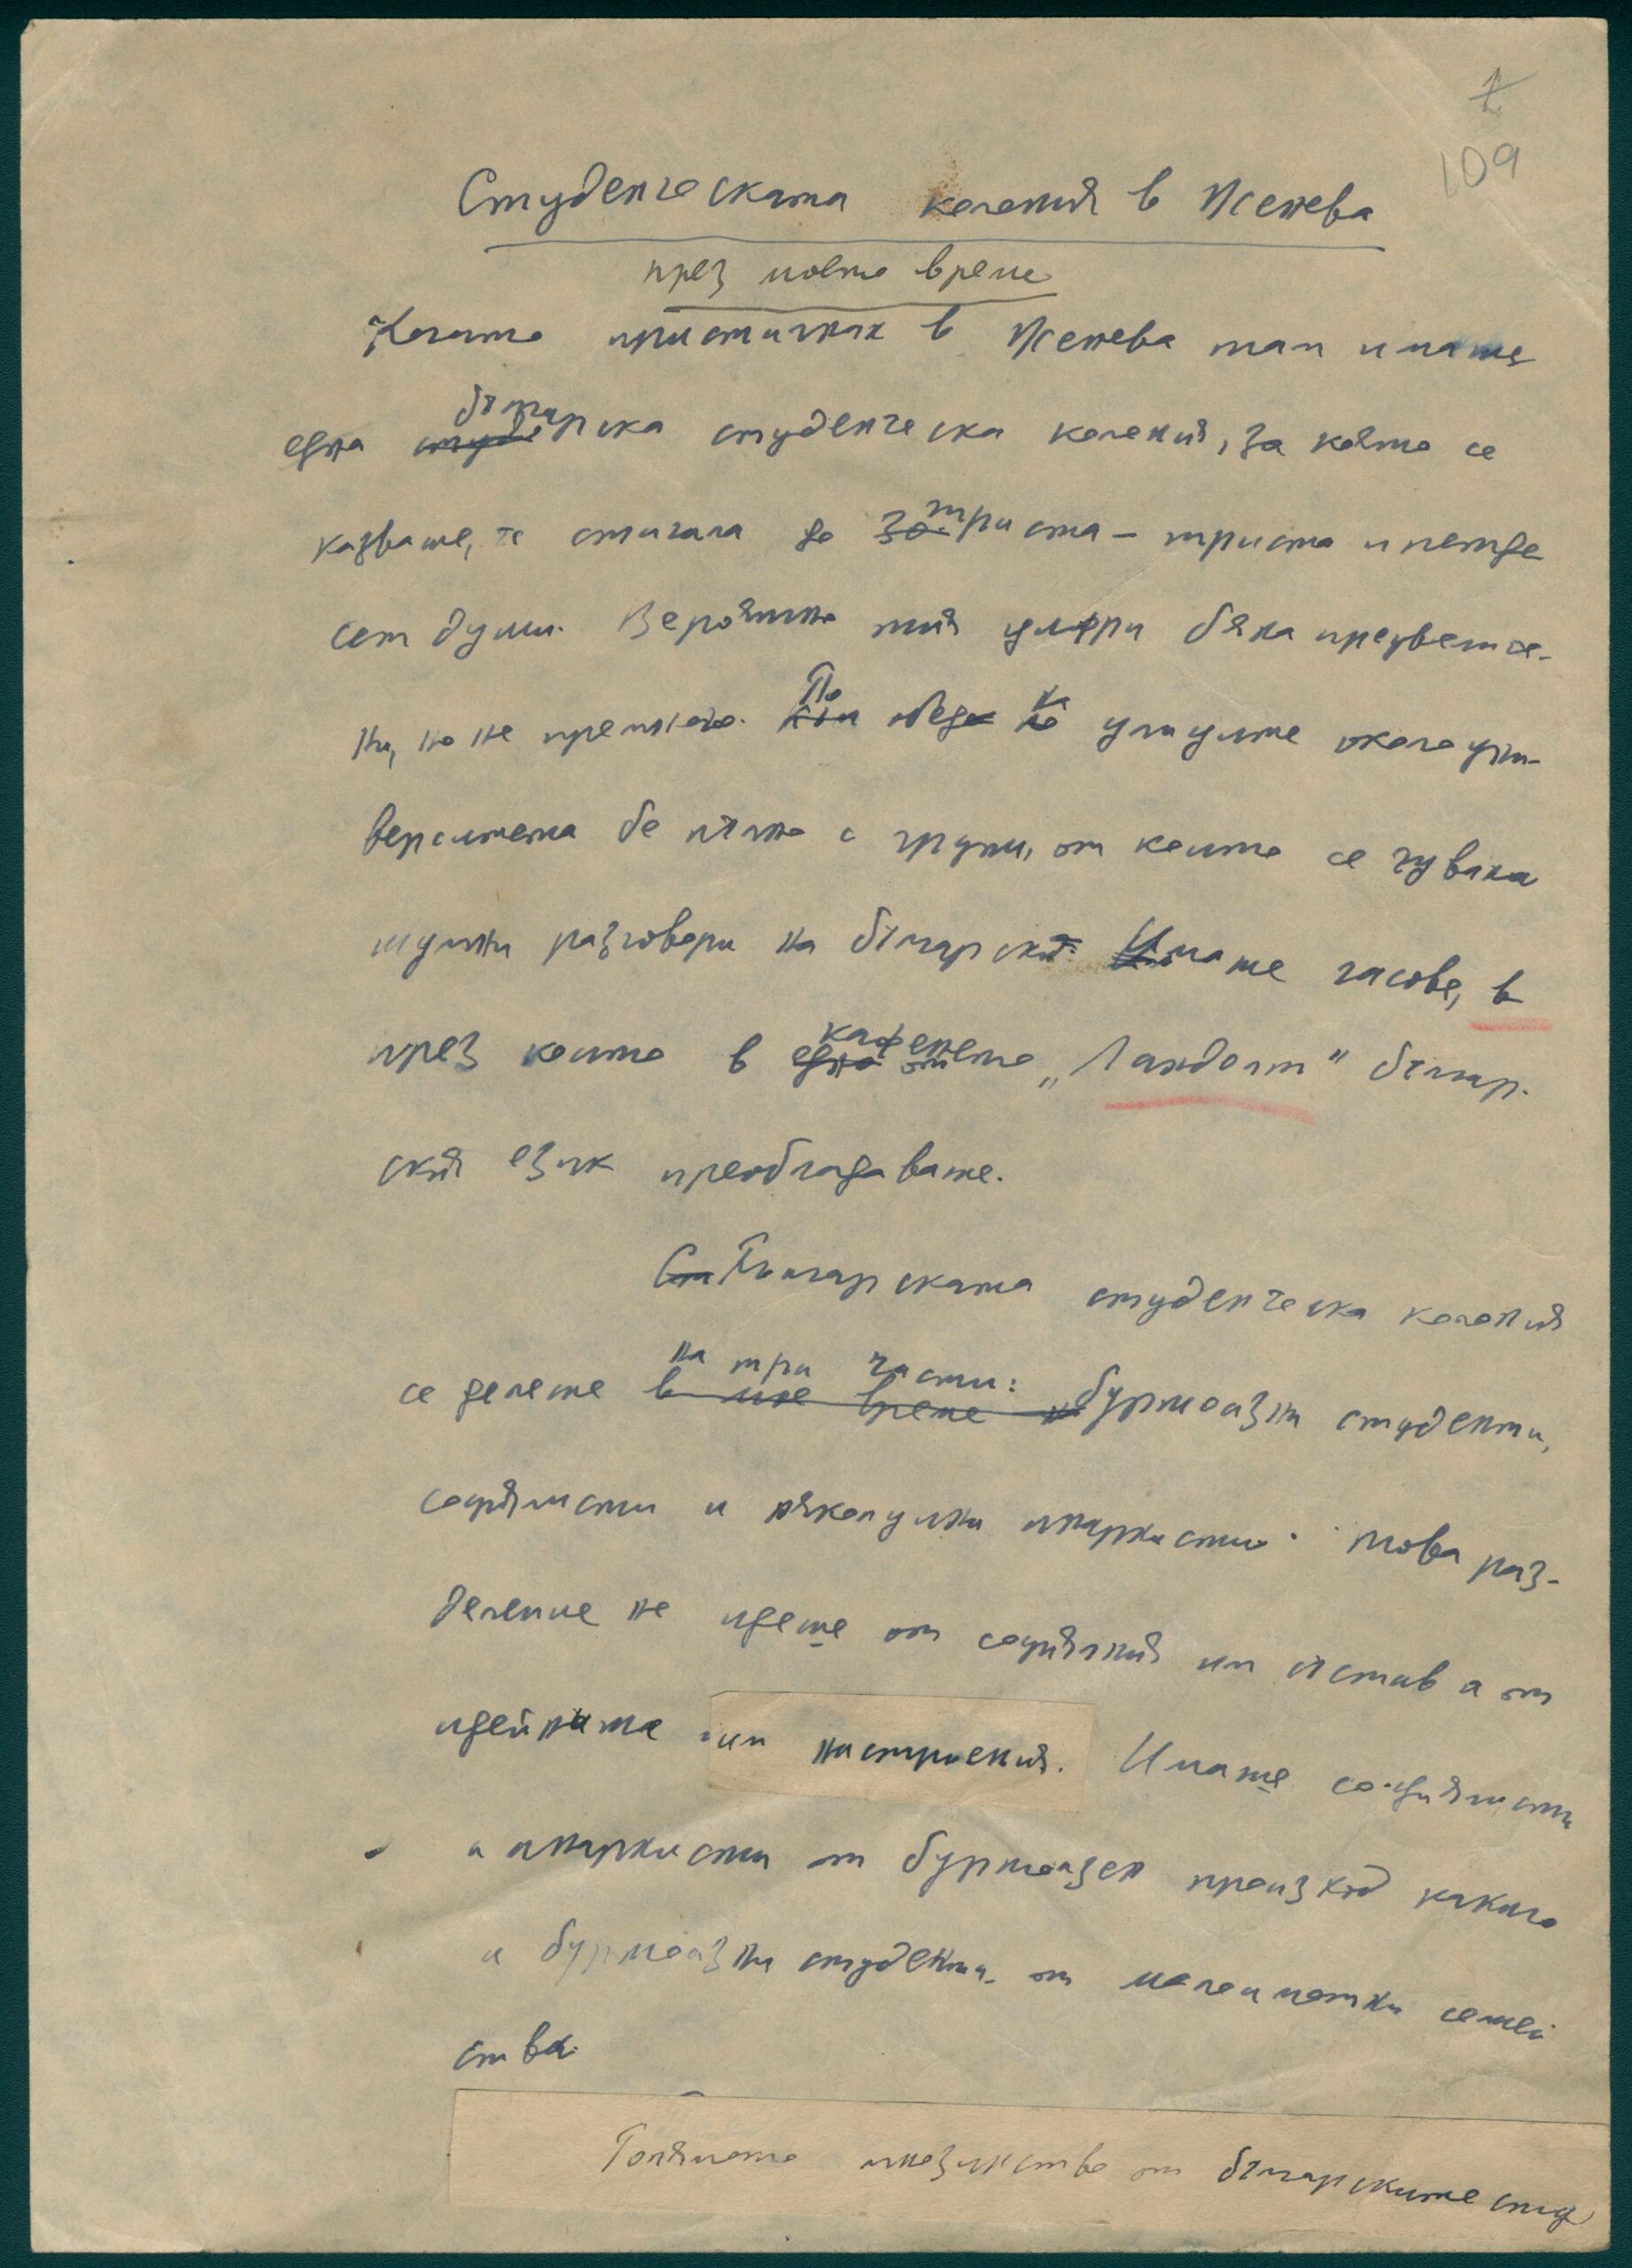 1
109
Студенческата колония в Женева
през моето време
Когато пристигнах в Женева там имаше
една българска студенческа колония, за която се
казваше, че стигала до триста – триста и петде
сет души. Вероятно тия цифри бяха преувеличе-
ни, но не премного. По обед на улиците около уни-
верситета бе пълно с групи, от които се чуваха
шумни разговори на български. Имаше часове, в
през които в кафенето „Ландолт" българ-
ския език преобладаваше.
Българската студенческа колония
се делеше на три части: буржоазни студенти,
социялисти и няколцина анархисти. Това раз-
деление не идеше от социялния им състав а от
идейните им настроения. Имаше социялисти
и анархисти от буржоазен произход както
и буржоазни студенти от малоимотни семей
ства.
Голямото мнозинство от българските студ